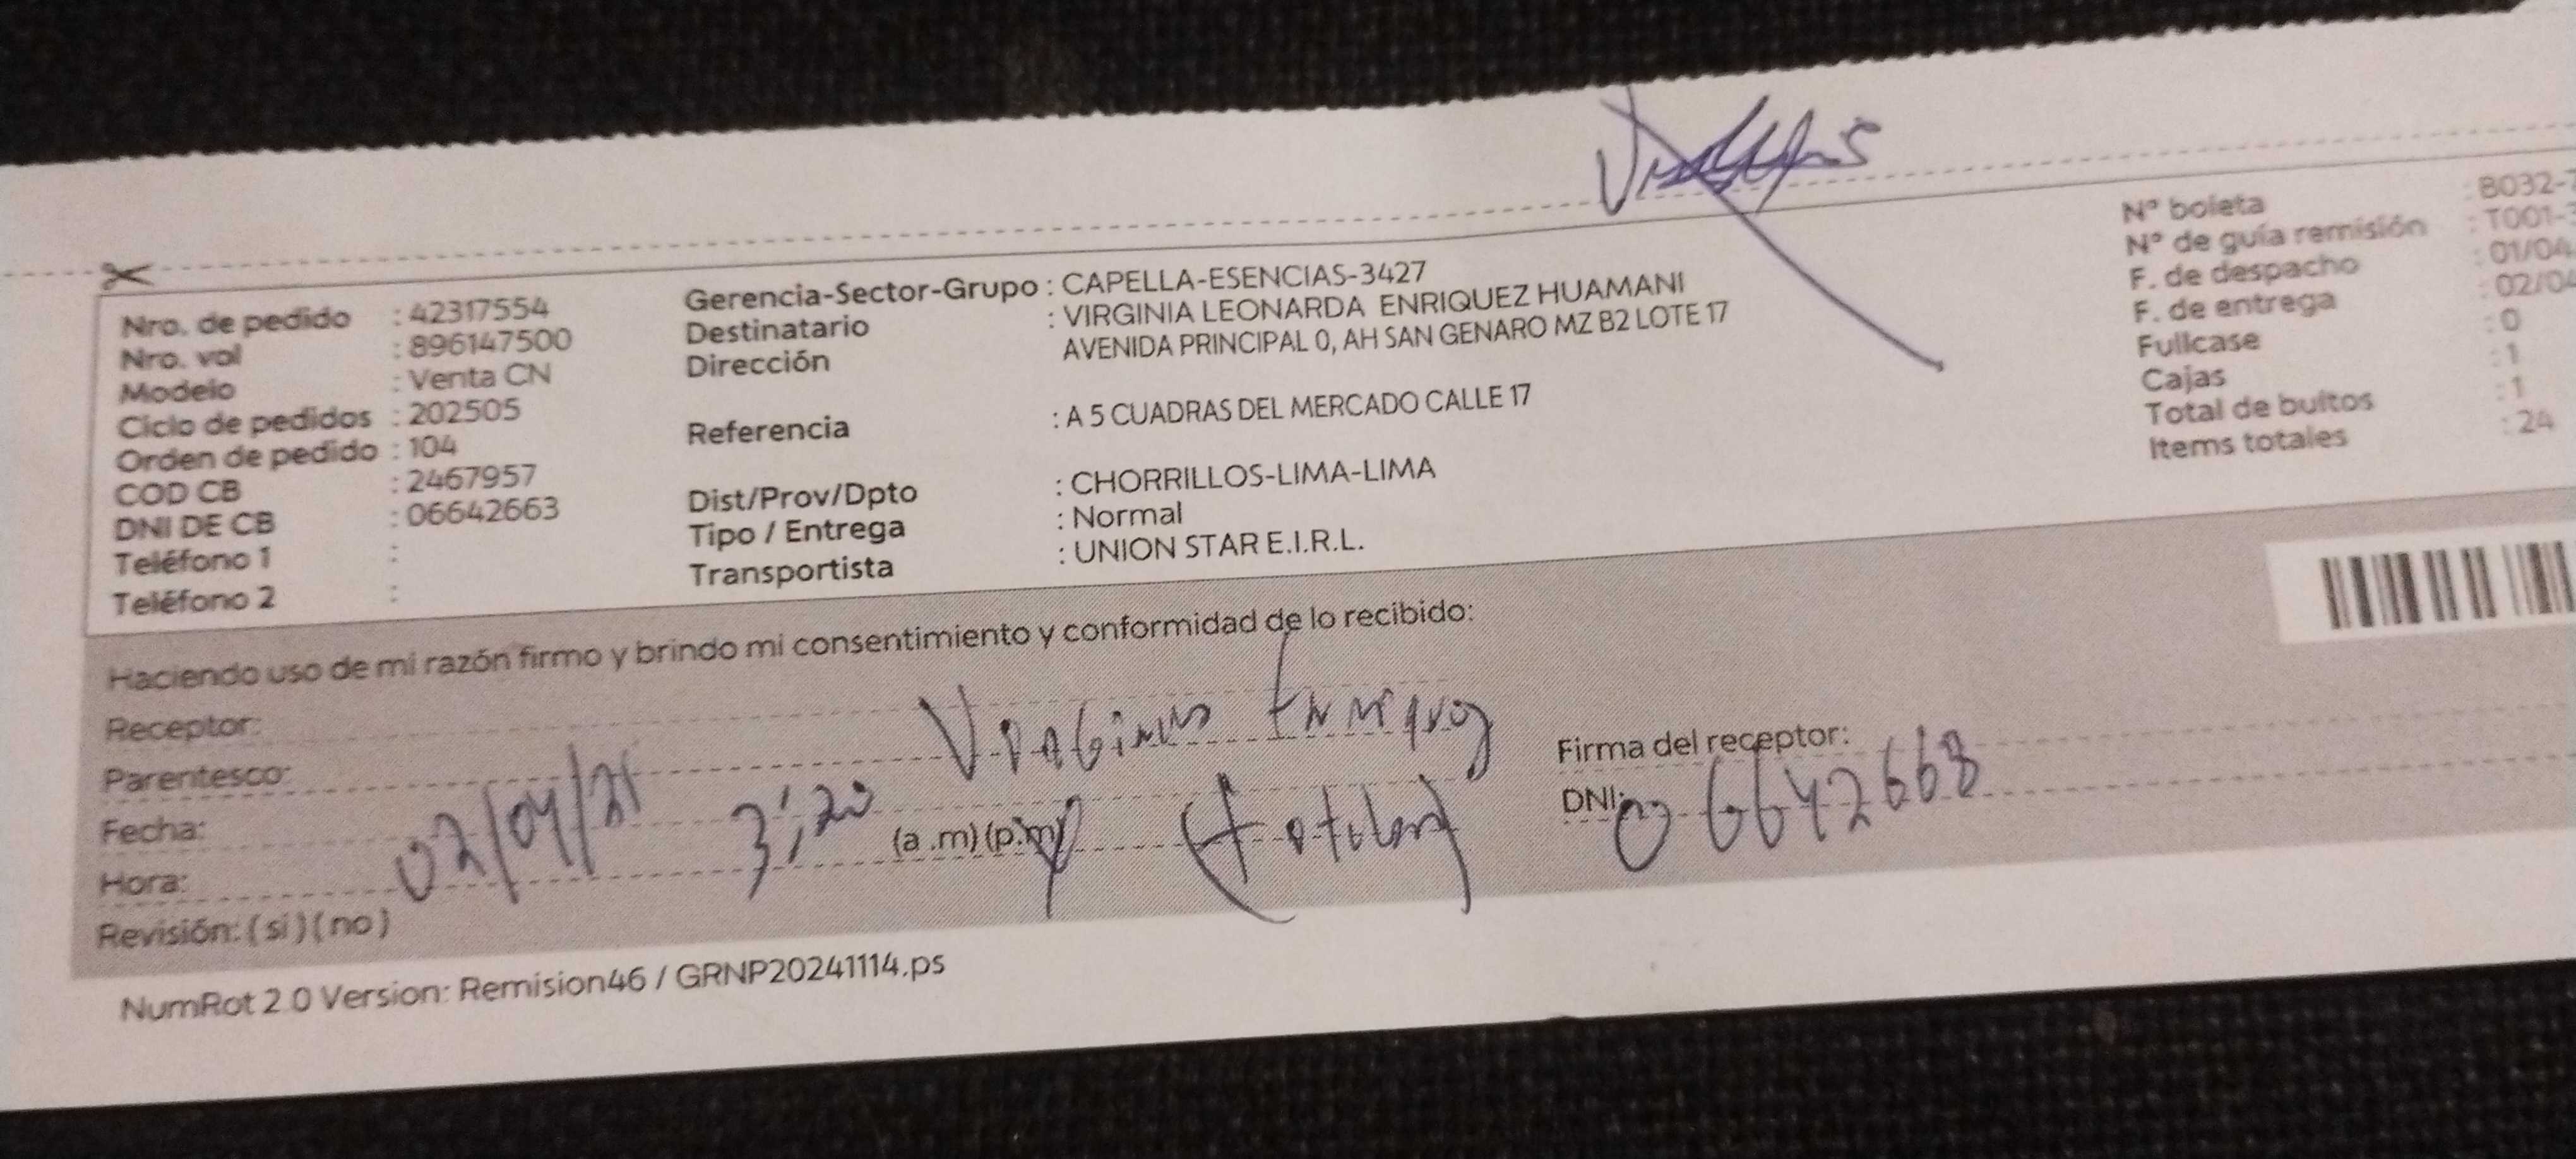 Nro. de pedido : 42317554
Nro. val : 896147500
Modelo : Venta CN
Ciclo de pedidos : 202505
Orden de pedido : 104
COD CB : 2467957
DNI DE CB : 06642663
Teléfono 1 :
Teléfono 2 :
Gerencia-Sector-Grupo : CAPELLA-ESENCIAS-3427
Destinatario : VIRGINIA LEONARDA ENRIQUEZ HUAMANI
Dirección AVENIDA PRINCIPAL 0, AH SAN GENARO MZ B2 LOTE 17
Referencia : A 5 CUADRAS DEL MERCADO CALLE 17
Dist/Prov/Dpto : CHORRILLOS-LIMA-LIMA
Tipo / Entrega : Normal
Transportista : UNION STAR E.I.R.L.
N° boleta : B032-7
N° de guía remisión : T001-
F. de despacho : 01/04
F. de entrega : 02/04
Fullcase : 0
Cajas : 1
Total de bultos : 1
Items totales : 24
Haciendo uso de mi razón firmo y brindo mi consentimiento y conformidad de lo recibido:
Receptor:
Parentesco:
Fecha: 02/04/
Hora: 3:20 (a.m) (p.m)
Revisión: ( si ) ( no )
Firma del receptor:
DNI: 06642668
(titular)
NumRot 2.0 Version: Remision46 / GRNP20241114.ps